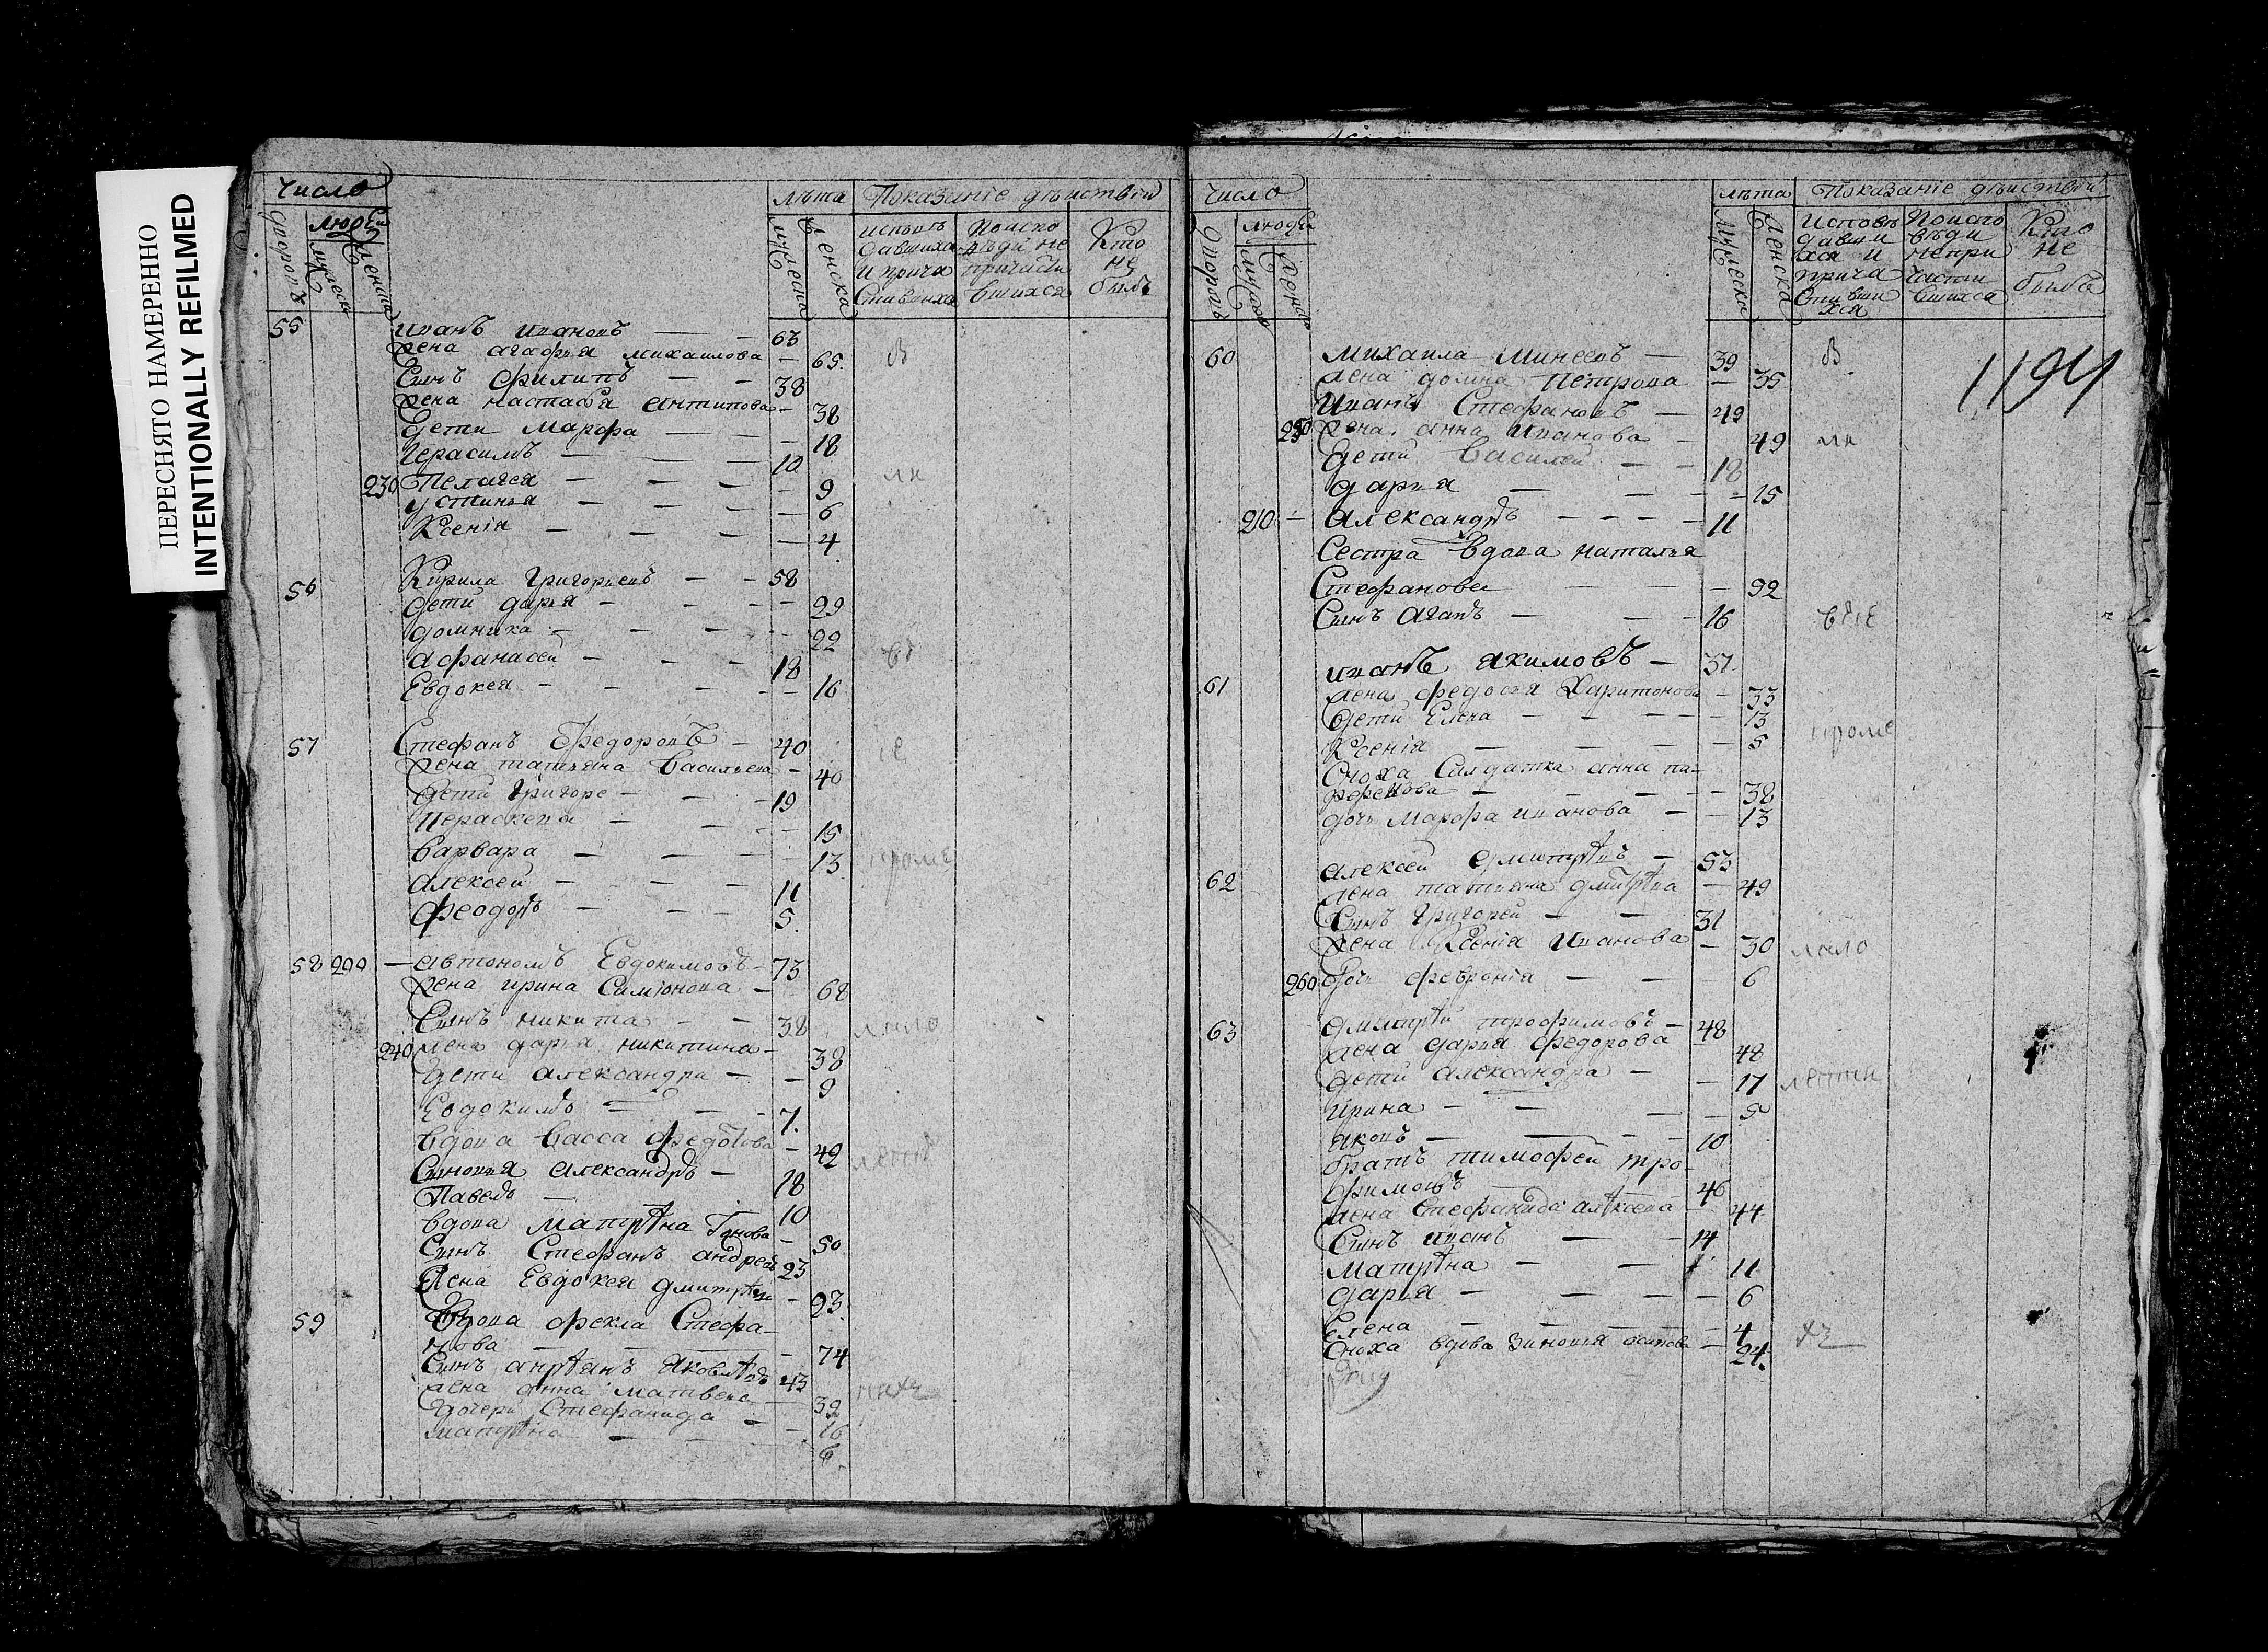 ПЕРЕСНЯТО НАМЕРЕННО
INTENTIONALLY REFILMED
Число
людей
лѣта
Показаніе дѣиствъ
Кто
не
былъ
55 иванъ ивановъ — 63
жена агафья михаилова — 65.
Сынъ филипъ — 38
жена настасья антипова — 38
дети Марфа — 18
Герасимъ — 10
230 Пелагея — 9
устинья — 6
Ксенія — 4
56 Кирила Григорьевъ — 58
дети дарья — 29
домника — 22
Афанасей — 18
Евдокея — 16
57 Стефанъ Федоровъ — 40
жена татьяна Васильева — 40
дети Григоре — 19
Параскева — 15
варвара — 13
алексей — 11
феодоръ — 5.
58 200 — автономъ Евдокимовъ — 73
жена ирина Симіонова — 68
Сынъ никита — 38
240 жена дарья никитина — 38
дети александра — 9
Евдокимъ — 7.
вдова васса федотова — 42
Сыновья александръ — 18
Павелъ — 10
вдова матрѣна — 50
Сынъ Стефанъ андреевъ 23
жена Евдокея дмитрѣва — 23.
59 вдова фекла Стефа-
нова — 74
Сынъ Яковлѣвъ 43
жена анна матвеева — 39
дочери Стефанида — 16
матрѣна — 6
Число
людей
лѣта
Показаніе дѣиствъ
Исповѣ
давши
хся и
прича
стивши
хся
Поиспо
вѣди
непри
части
вшихся
Кто
не
былъ
1194
60 михаила Минеевъ — 39
жена домна Петрова — 35
Иванъ Стефановъ — 49
250 жена анна Иванова — 49
дети Василей — 18
дарья — 15
210 — александръ — 11
Сестра вдова наталья
Стефанова — 52
Сынъ Агапъ — 16
иванъ якимовъ — 37
61 жена федосья Харитонова — 33
дети Елена — 13
Ксенія — 5
Сноха Салдатка анна па-
рфенова — 38
дочь марфа иванова — 13
62 алексей дмитрѣвъ — 53
жена татьяна дмитрѣва — 49
Сынъ Григорей — 31
жена Ксенія Иванова — 30
260 дочь феѵронія — 6
63 дмитрѣй трофимовъ — 48
жена дарья федорова — 48
дети александра — 17
ирина — 5
яковъ — 10
братъ тимофей тро-
фимовъ — 46
жена Стефанида алѣксеева — 44
Сынъ иванъ — 14
матрѣна — 11
дарья — 6
елена — 4
Сноха вдова зиновья осипова — 24.